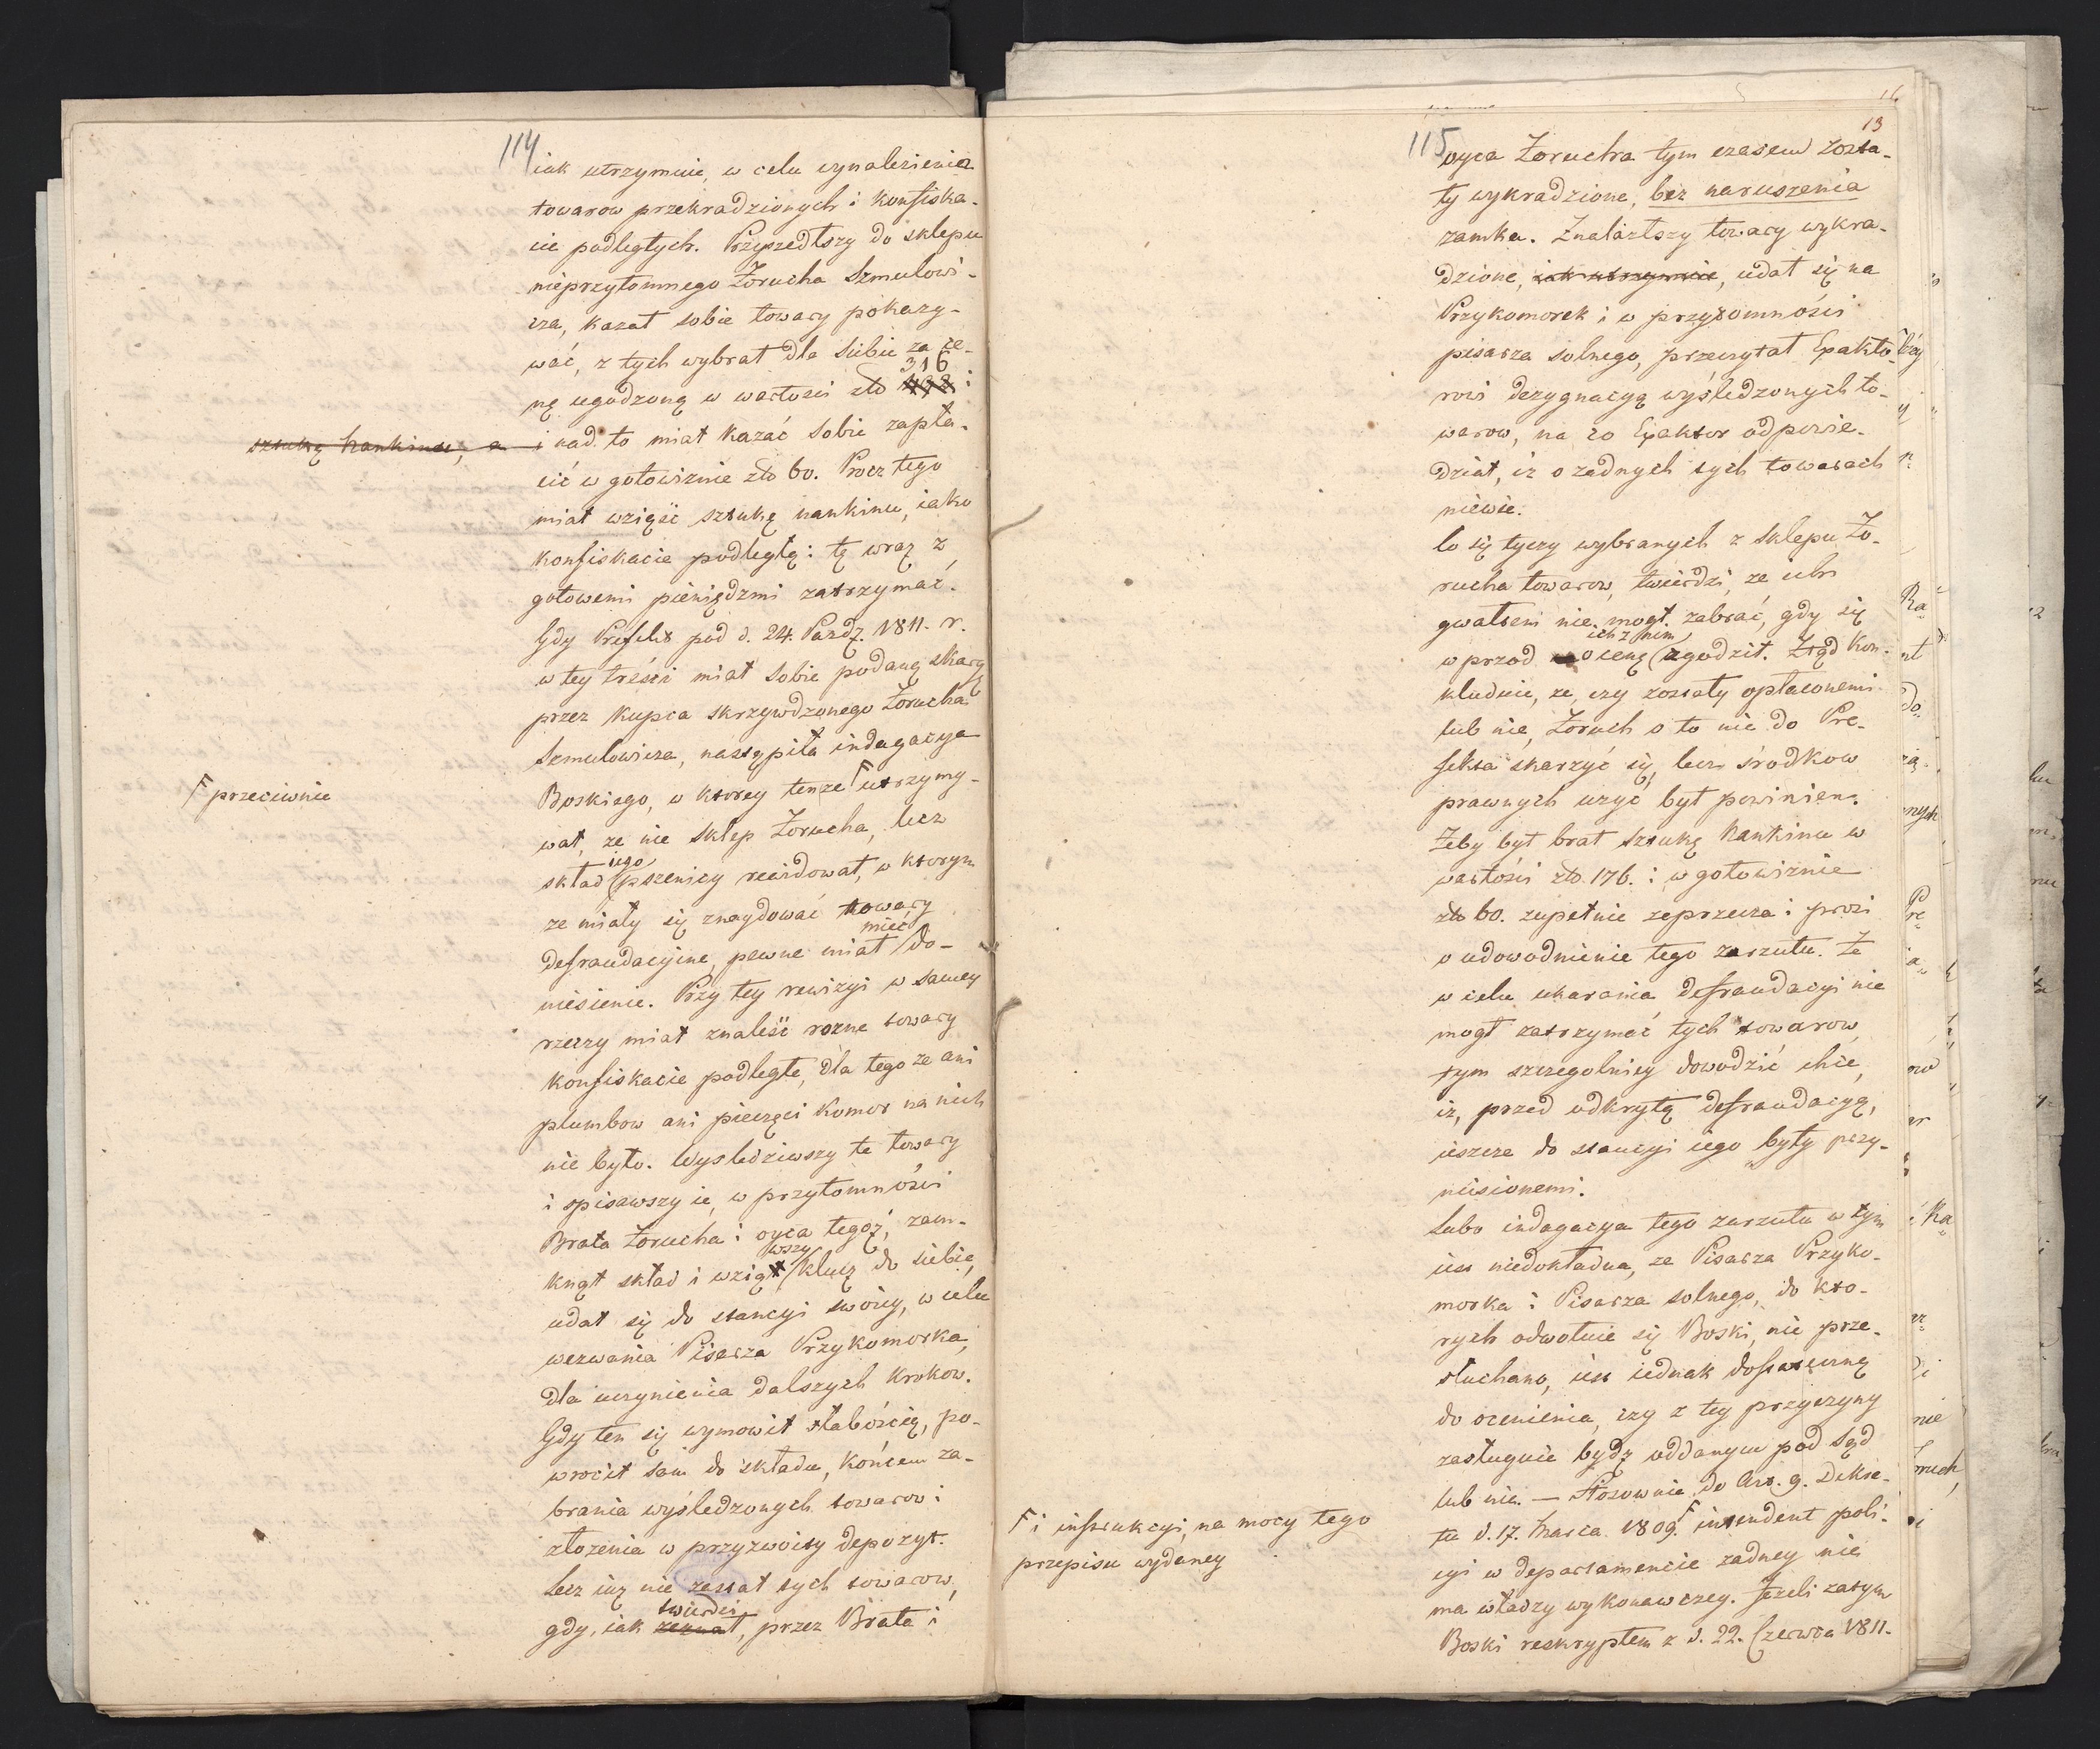 114
iak utrzymuie, w celu wynalezienia
towarow przekradzionych i konfiska-
cie podległych. Przyszedłszy do sklepu
nieprzytomnego Zorucha Szmulowi-
cza, kazał sobie towary pokazy-
wać, z tych wybrał dla siebie za ce-
316
nę ugodzoną w wartości zło i
sztukę Nankinu, a i nad to miał kazać sobie zapła-
cić w gotowiznie zło 60. Procz tego
miał wziąść sztukę nankinu, iako
konfiskacie podległą: tę wraz z
gotowemi pieniędzmi zatrzymać.
Gdy Prefekt pod d. 24. Pazdz. 1811. r.
w tey treści miał sobie podaną skargę
przez Kupca skrzywdzonego Zorucha
Szmulowicza, nastąpiła indagacya
Boskiego, w ktorey tenze F utrzymy-
F przeciwnie
wał, ze nie sklep Zorucha, lecz
iego
skład pszenicy rewidował, w ktorym
ze miały się znaydować towary
mieć
defraudacyine, pewne miał do-
niesienie. Przy tey rewizyi w samey
rzeczy miał znaleść rozne towary
konfiskacie podległe, dla tego ze ani
plumbow ani pieczęci Komor na nich
nie było. Wysledziwszy te towary
i spisawszy ie, w przytomności
Brata Zorucha i oyca tegoż, zam-
wszy
knął skład i wziął klucz do siebie,
udał się do stancyi swoiey, w celu
wezwania Pisarza Przykomorka,
dla uczynienia dalszych krokow.
Gdy ten się wymowił słabością, po-
wrocił sam do składu, końcem za-
brania wyśledzonych towarow i
złozenia w przyzwoity depozyt.
Lecz iuz nie zastał tych towarow,
twierdzi
gdy, iak zeznał, przez Brata i
16
13
115
oyca Zorucha tym czasem zosta-
ły wykradzione, bez naruszenia
zamka. Znalazłszy towary wykra-
dzione, iak utrzymuie, udał się na
Przykomorek i w przytomności
pisarza solnego, przeczytał Exakto-
rowi dezygnacyą wyśledzonych to-
warow, na co Exaktor odpowie-
dział, iz o zadnych tych towarach
niewie.
Co się tyczy wybranych z sklepu Zo-
rucha towarow, twierdzi, ze ich
gwałtem nie mogł zabrać, gdy się
ich z nim
w przod o cenę zgodził. Ztąd kon-
kluduie, ze, czy zostały opłaconemi
lub nie, Zoruch o to nie do Pre-
fekta skarzyć się, lecz środkow
prawnych uzyć był powinien.
Zeby był brał sztukę Nankinu w
wartości zło. 176. i w gotowiznie
zło 60. zupełnie zaprzecza i prosi
o udowodnienie tego zarzutu. Ze
w celu ukarania defraudacyi nie
mogł zatrzymać tych towarow,
tym szczegolniey dowodzić chce,
iz, przed odkrytą defraudacyą,
ieszcze do stancyi iego były przy-
niesionemi.
Lubo indagacya tego zarzutu w tym
iest niedokładna, ze Pisarza Przyko-
morka i Pisarza solnego, do kto-
rych odwołuie się Boski, nie prze-
słuchano, iest iednak dostateczną
do ocenienia, czy z tey przyczyny
zasługuie bydz oddanym pod Sąd
lub nie. — Stosownie do Art. 9. Dekre-
tu d. 17. Marca 1809. F intendent poli-
F i instrukcyi, na mocy tego
przepisu wydaney
cyi w departamencie zadney nie
ma władzy wykonawczey. Jezeli zatym
Boski reskryptem z d. 22. Czerwca 1811.